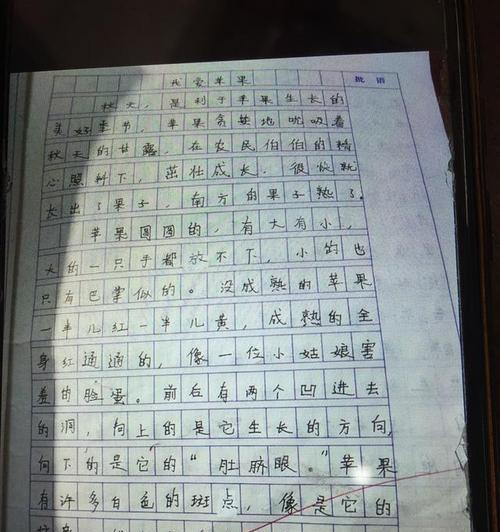 我爱苹果
批语
秋天，是利于苹果生长的
美好季节，苹果贪婪地吮吸着
秋天的甘露，在农民伯伯的精
心照料下，茁壮成长，很快就
长出了果子，南方的果子熟了。
苹果圆圆的，有大有小，
大的一只手都放不下，小的也
只有巴掌似的。没成熟的苹果
一半儿红一半儿黄，成熟的全
身红通通的，像一位小姑娘害
羞的脸蛋。前后有两个凹进去
的洞，向上的是它生长的方向，
向下的是它的“肚脐眼。”苹果
有许多白色的斑点，像是它的